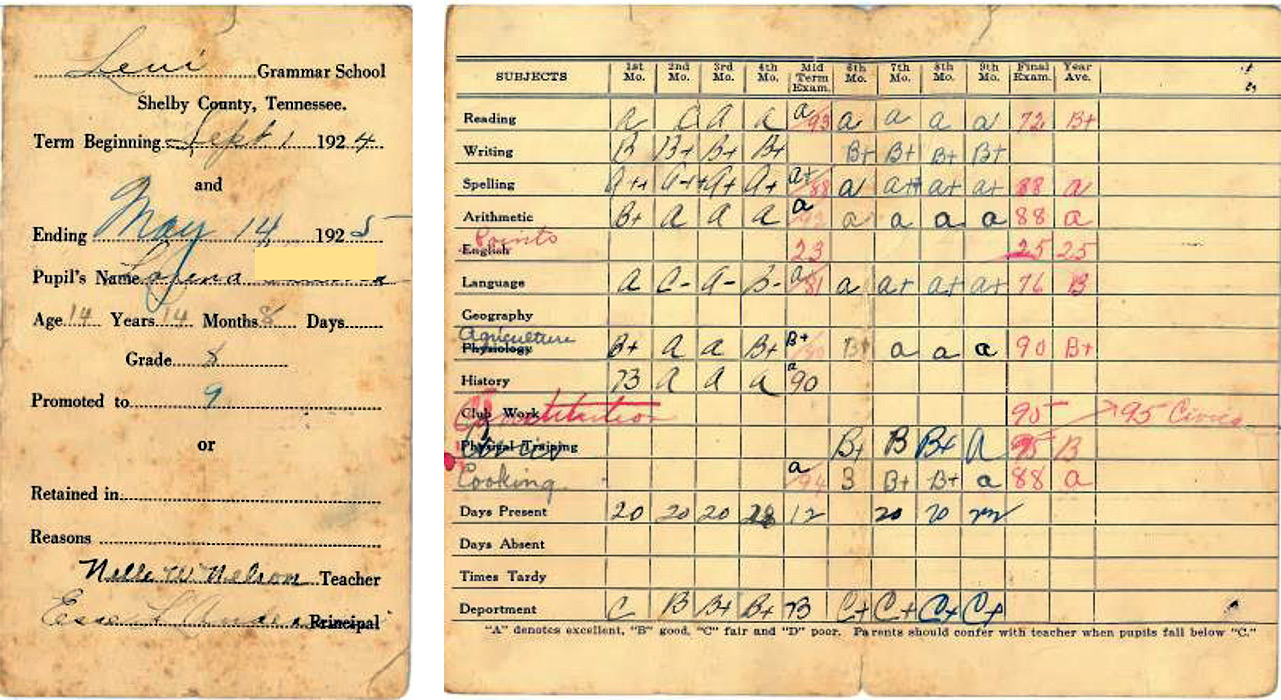 Levi Grammar School
Shelby County, Tennessee.
Term Beginning Sept 1 1924
and
Ending May 14 1925
Pupil's Name Lorena
Age 14 Years 14 Months 8 Days
Grade 8
Promoted to 9
or
Retained in
Reasons
Nelle W Nelson Teacher
Principal
SUBJECTS 1st Mo. 2nd Mo. 3rd Mo. 4th Mo. Mid Term Exam. 6th Mo. 7th Mo. 8th Mo. 9th Mo. Final Exam. Year Ave.
Reading a C a a a 93 a a a a 72 B+
Writing B B+ B+ B+ B+ B+ B+ B+
Spelling a++ a++ a+ a+ a+ 88 a a++ a+ a+ 88 a
Arithmetic B+ a a a a a a a a 88 a
Points
English 23 25 25
Language a C- a- B- a 81 a a+ a+ a+ 76 B
Geography
Agriculture
Physiology B+ a a B+ B+ B+ a a a 90 B+
History 73 a a a a 90
Club Work Constitution 95 95 Civics
Physical Training Civics B+ B B+ a 95 B
Cooking a 94 B B+ B+ a 88 a
Days Present 20 20 20 28 12 20 20
Days Absent
Times Tardy
Deportment C B B+ B+ B C+ C+ C+ C+
"A" denotes excellent, "B" good, "C" fair and "D" poor. Parents should confer with teacher when pupils fall below "C."